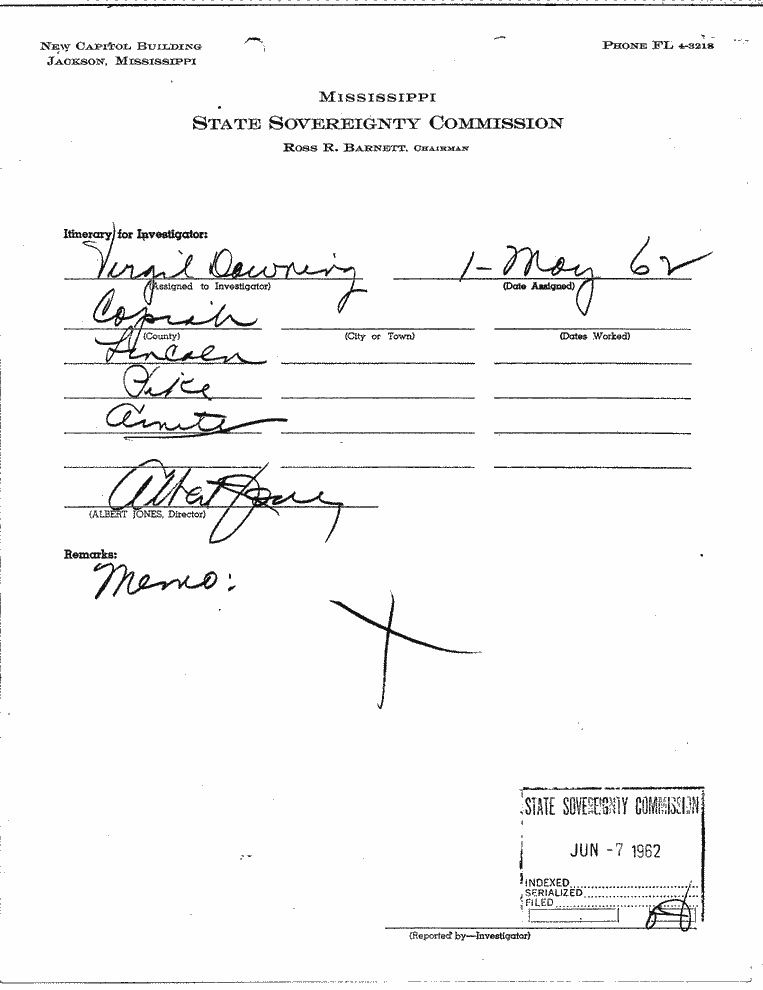 NEW CAPITOL BUILDING
JACKSON, MISSISSIPPI
PHONE FL 4-3218
MISSISSIPPI
STATE SOVEREIGNTY COMMISSION
ROSS R. BARNETT, CHAIRMAN
Itinerary for Investigator:
Virgil Downing 1-May 62
(Assigned to Investigator) (Date Assigned)
Copiah
(County) (City or Town) (Dates Worked)
Lincoln
Pike
Amite
Albert Jones
(ALBERT JONES, Director)
Remarks:
Memo:
STATE SOVEREIGNTY COMMISSION
JUN -7 1962
INDEXED
SERIALIZED
FILED
(Reported by—Investigator)